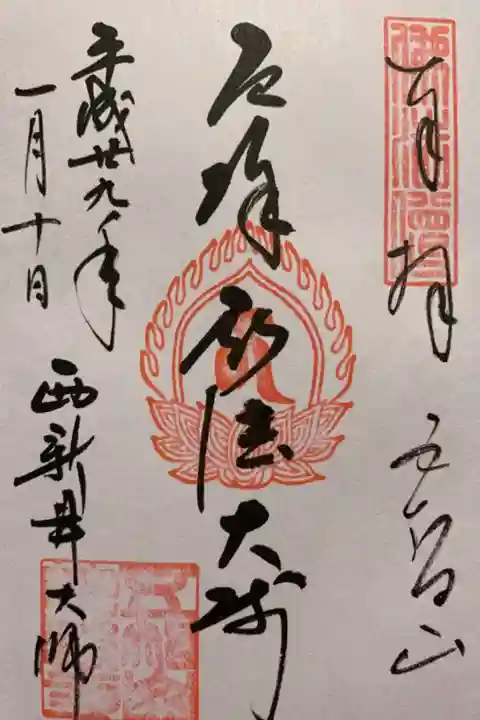 奉拝 五智山
厄除 弘法大師
平成廿九年
一月十日 西新井大師